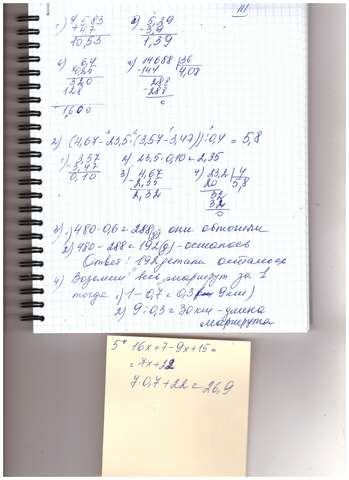 III
1) 5,83
+ 4,7
10,53
б) 5,29
- 3,9
1,39
в) 6,4
× 0,25
320
128
1,600
г) 14688 | 36
- 144 4,08
288
- 288
0
2) (4,67-23,5·(3,57-3,47)):0,4 = 5,8
1) 3,57
- 3,47
0,10
2) 23,5·0,10 = 2,35
3) 4,67
- 2,35
2,32
4) 23,2 | 4
20 5,8
32
32
0
3) 1) 480·0,6 = 288(д) они обточили
2) 480-288 = 192(д) - осталось
Ответ: 192 детали осталось
4) Возьмем весь маршрут за 1
тогда 1) 1-0,7 = 0,3 (9км)
2) 9:0,3 = 30км - длина
маршрута
5* 16x+7-9x+15 =
= 7x+22
7·0,7+22 = 26,9